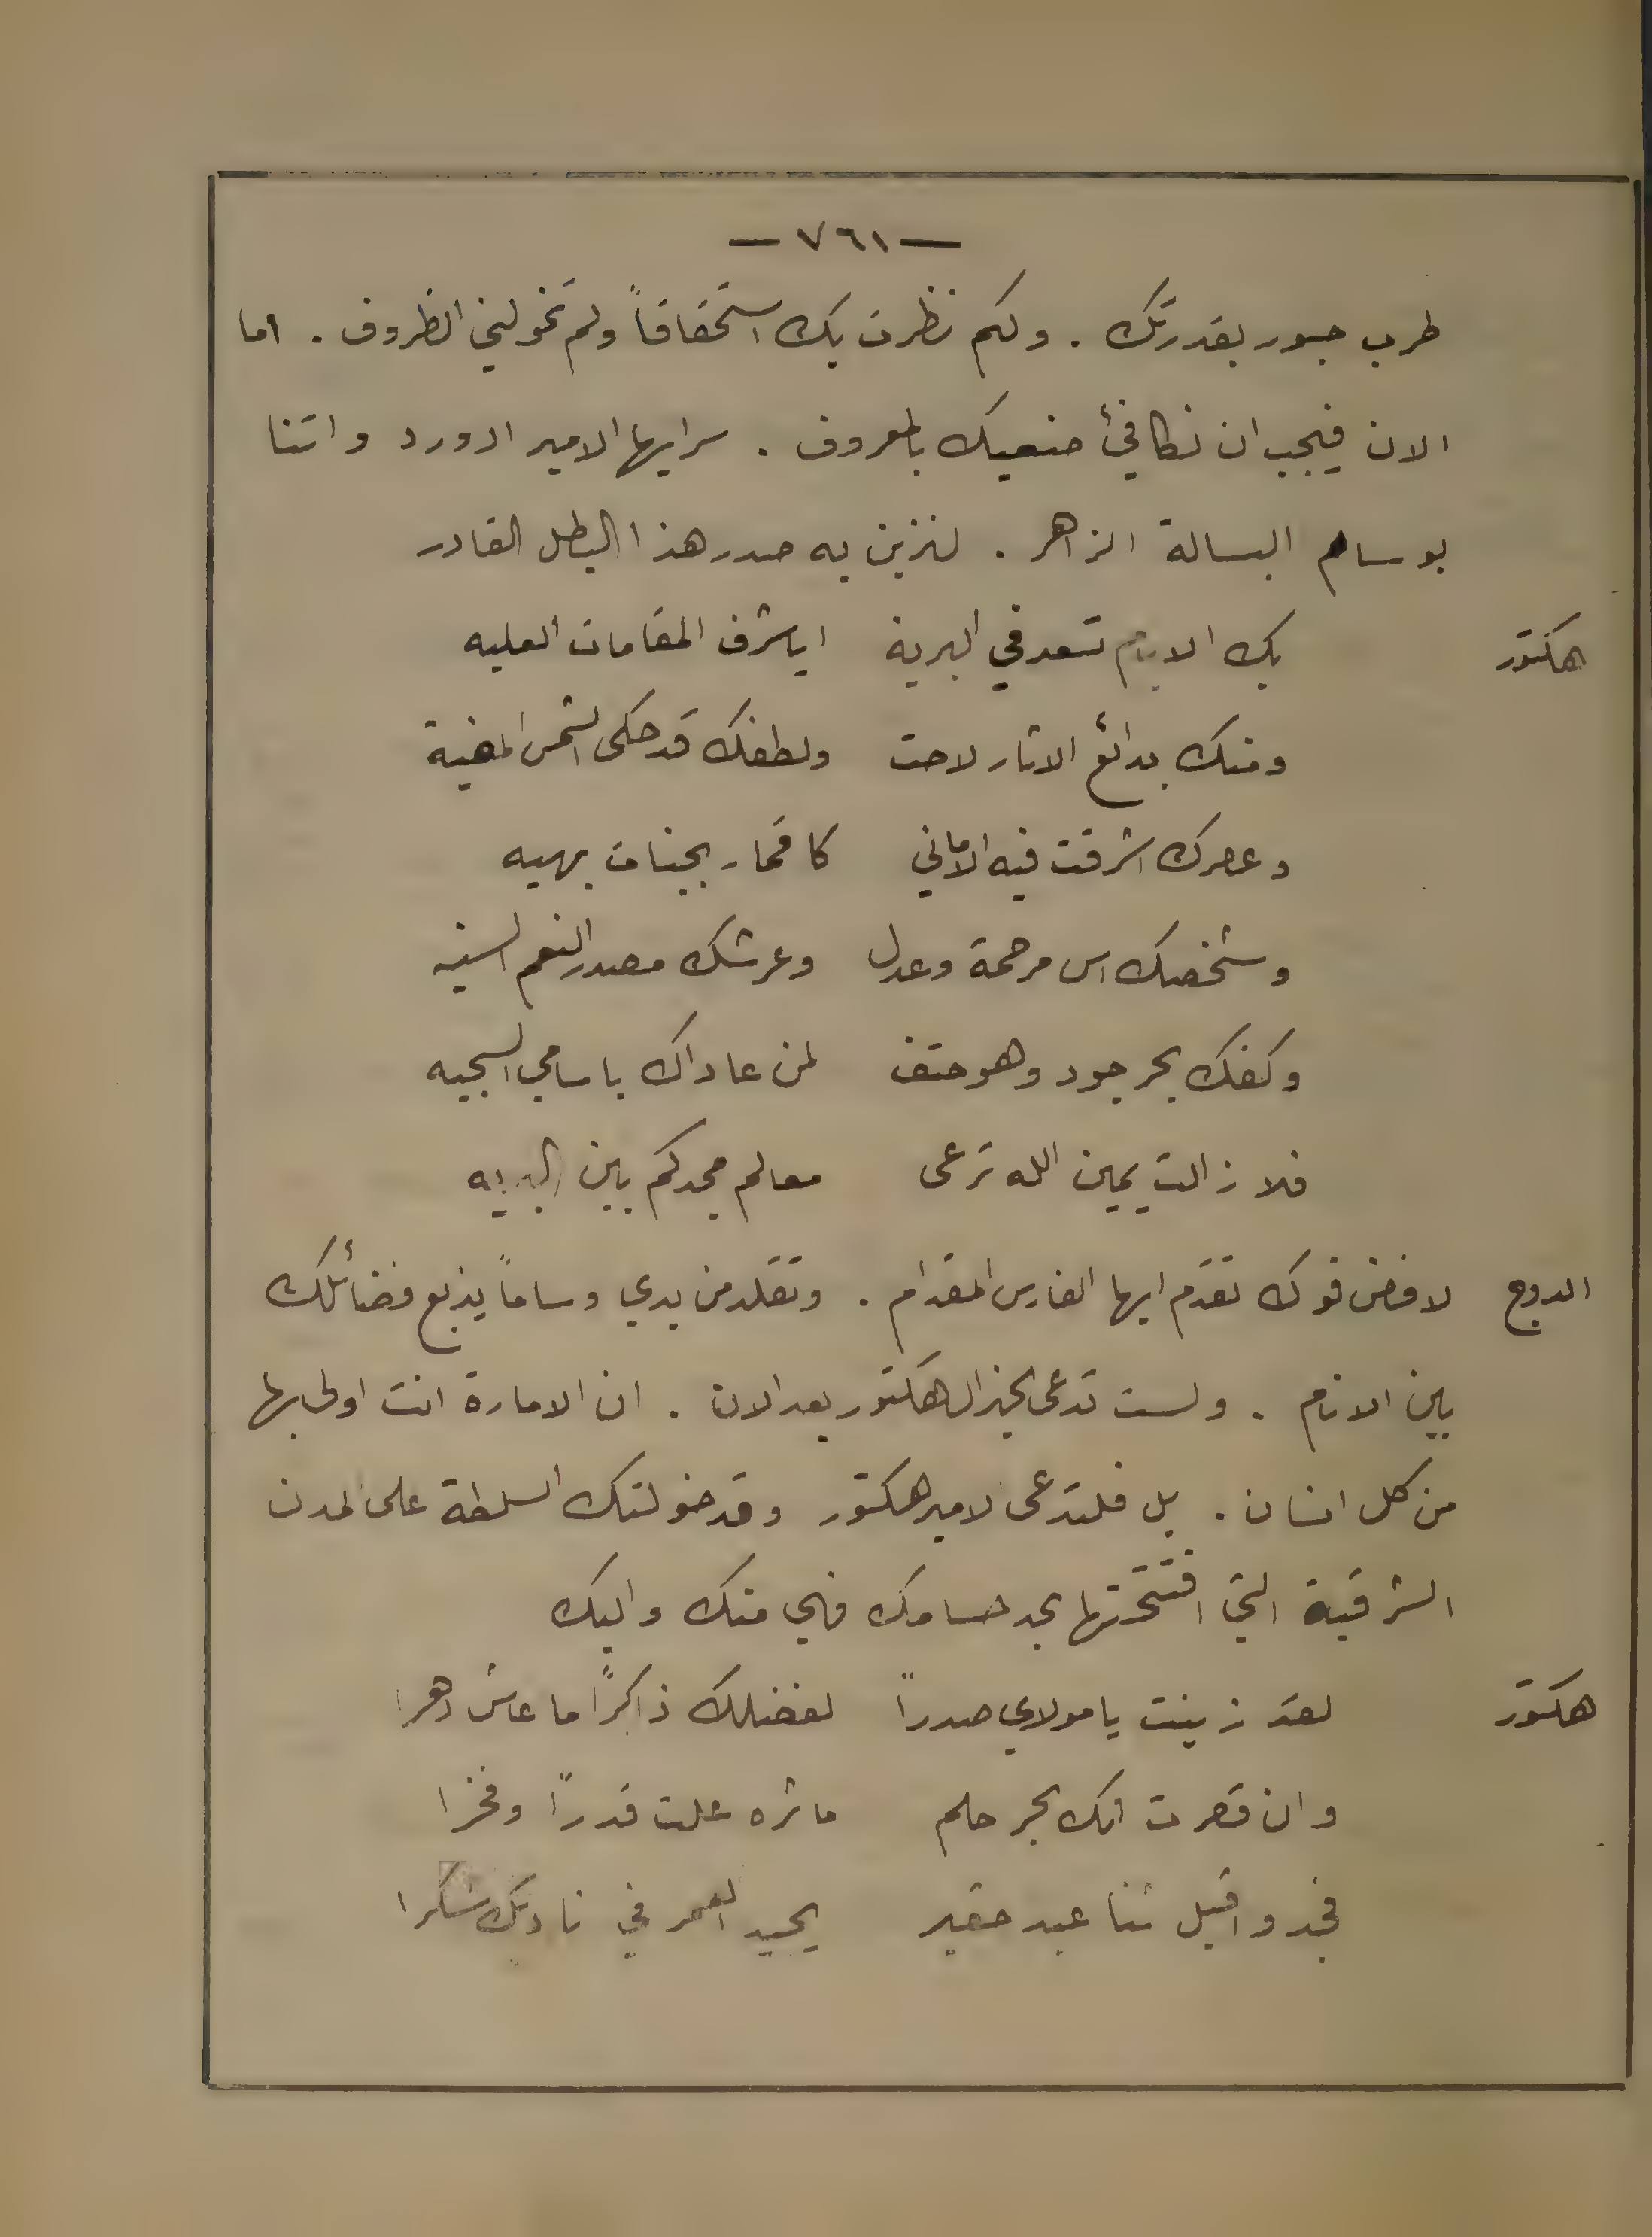 — ٧٦١ —
طرب جسور بقدرتك . ولكم نظرت بك استحقاقاً ولم تخولني الظروف . اما
الان فيجب ان نكافئ صنعيك بالمعروف . سر ايها الامير ادورد واتنا
بوسام البسالة الزاهر . لنزين به صدر هذا البطل القادر
هكتور بك الايام تسعد في البرية ايا شرف المقامات العليه
ومنك بدائع الاثار لاحت ولطفك قد حكى الشمس المضية
وعصرك اشرقت فيه الاماني كاقمار بجنات بهيه
وشخصك اس مرحمة وعدل وعرشك مصدر النعم السنيه
وكفك بحر جود وهو حتف لمن عاداك يا سامي السجيه
فلا زالت يمين الله ترعى معالم مجدكم بين البريه
الدوج لا فض فوك تقدم ايها الفارس المقدام . وتقلد من يدي وساماً يذيع فضائلك
بين الانام . ولست تدعى الجنرال هكتور بعد الان . ان الامارة انت اولى بها
من كل انسان . بل فلتدعى الامير هكتور وقد خولتك السلطة على المدن
الشرقية التي افتتحتها بحد حسامك فهي منك واليك
هكتور لقد زينت يا مولاي صدراً لفضلك ذاكراً ما عاش دهرا
وان قصرت انك بحر حلم ماثره علت قدراً وفخرا
فجد واقبل ثنا عبد حقير يحيد العمر في ناديك شكرا